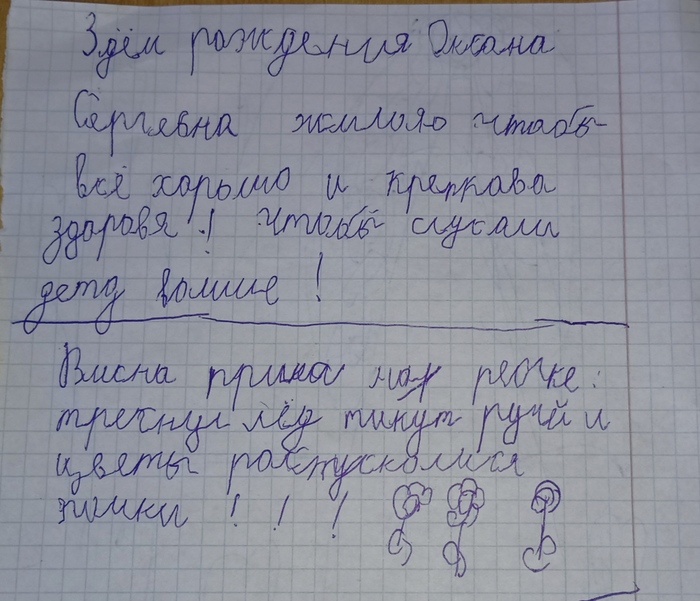 Здём рождения Оксана
Сергевна жмлояо чтобы
всё хорьшо и крепкава
здаровя! чтобы слусали
дето вошие!
Висна пришла на речке:
трехнул лёд тинут ручй и
цветы роспусколися
!!!